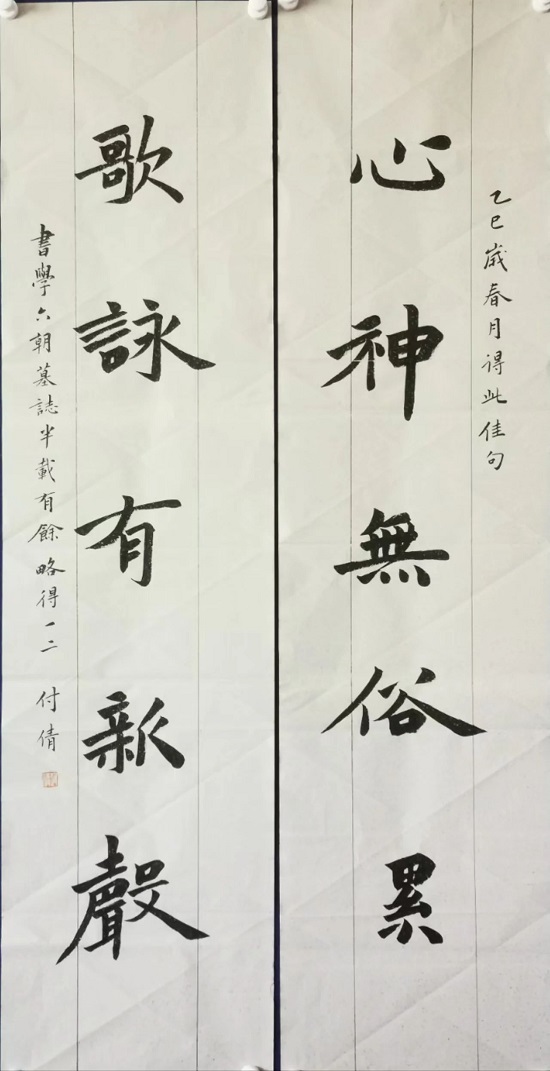 乙巳歲春月得此佳句
心神無俗累
歌詠有新聲
書學六朝墓誌半載有餘略得一二 付倩